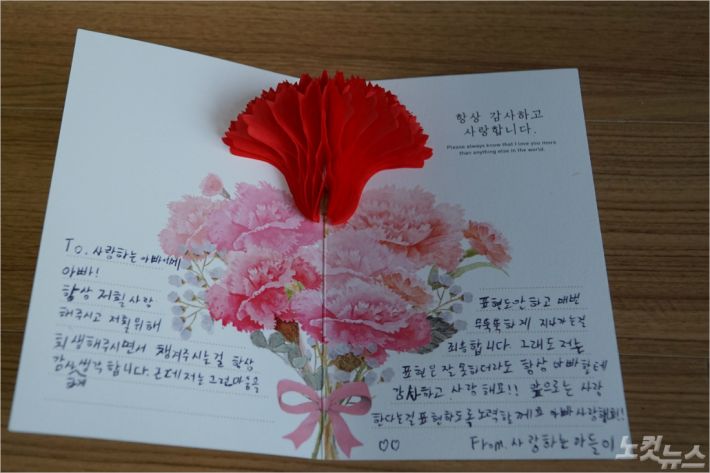 항상 감사하고
사랑합니다.
Please always know that I love you more
than anything else in the world.
To. 사랑하는 아빠에게
아빠!
항상 저희 사랑
해주시고 저희 위해
희생해주시면서 챙겨주시는걸 항상
감사 생각합니다. 근데 저는 그런마음을
표현도안하고 매번
무뚝뚝하게 지나가는걸
죄송합니다. 그래도 저는
표현은 잘 못하더라도 항상 아빠한테
감사하고 사랑해요!! 앞으로는 사랑
한다는걸 표현하도록 노력할게요 아빠 사랑해요!!
From. 사랑하는 아들이
노컷뉴스